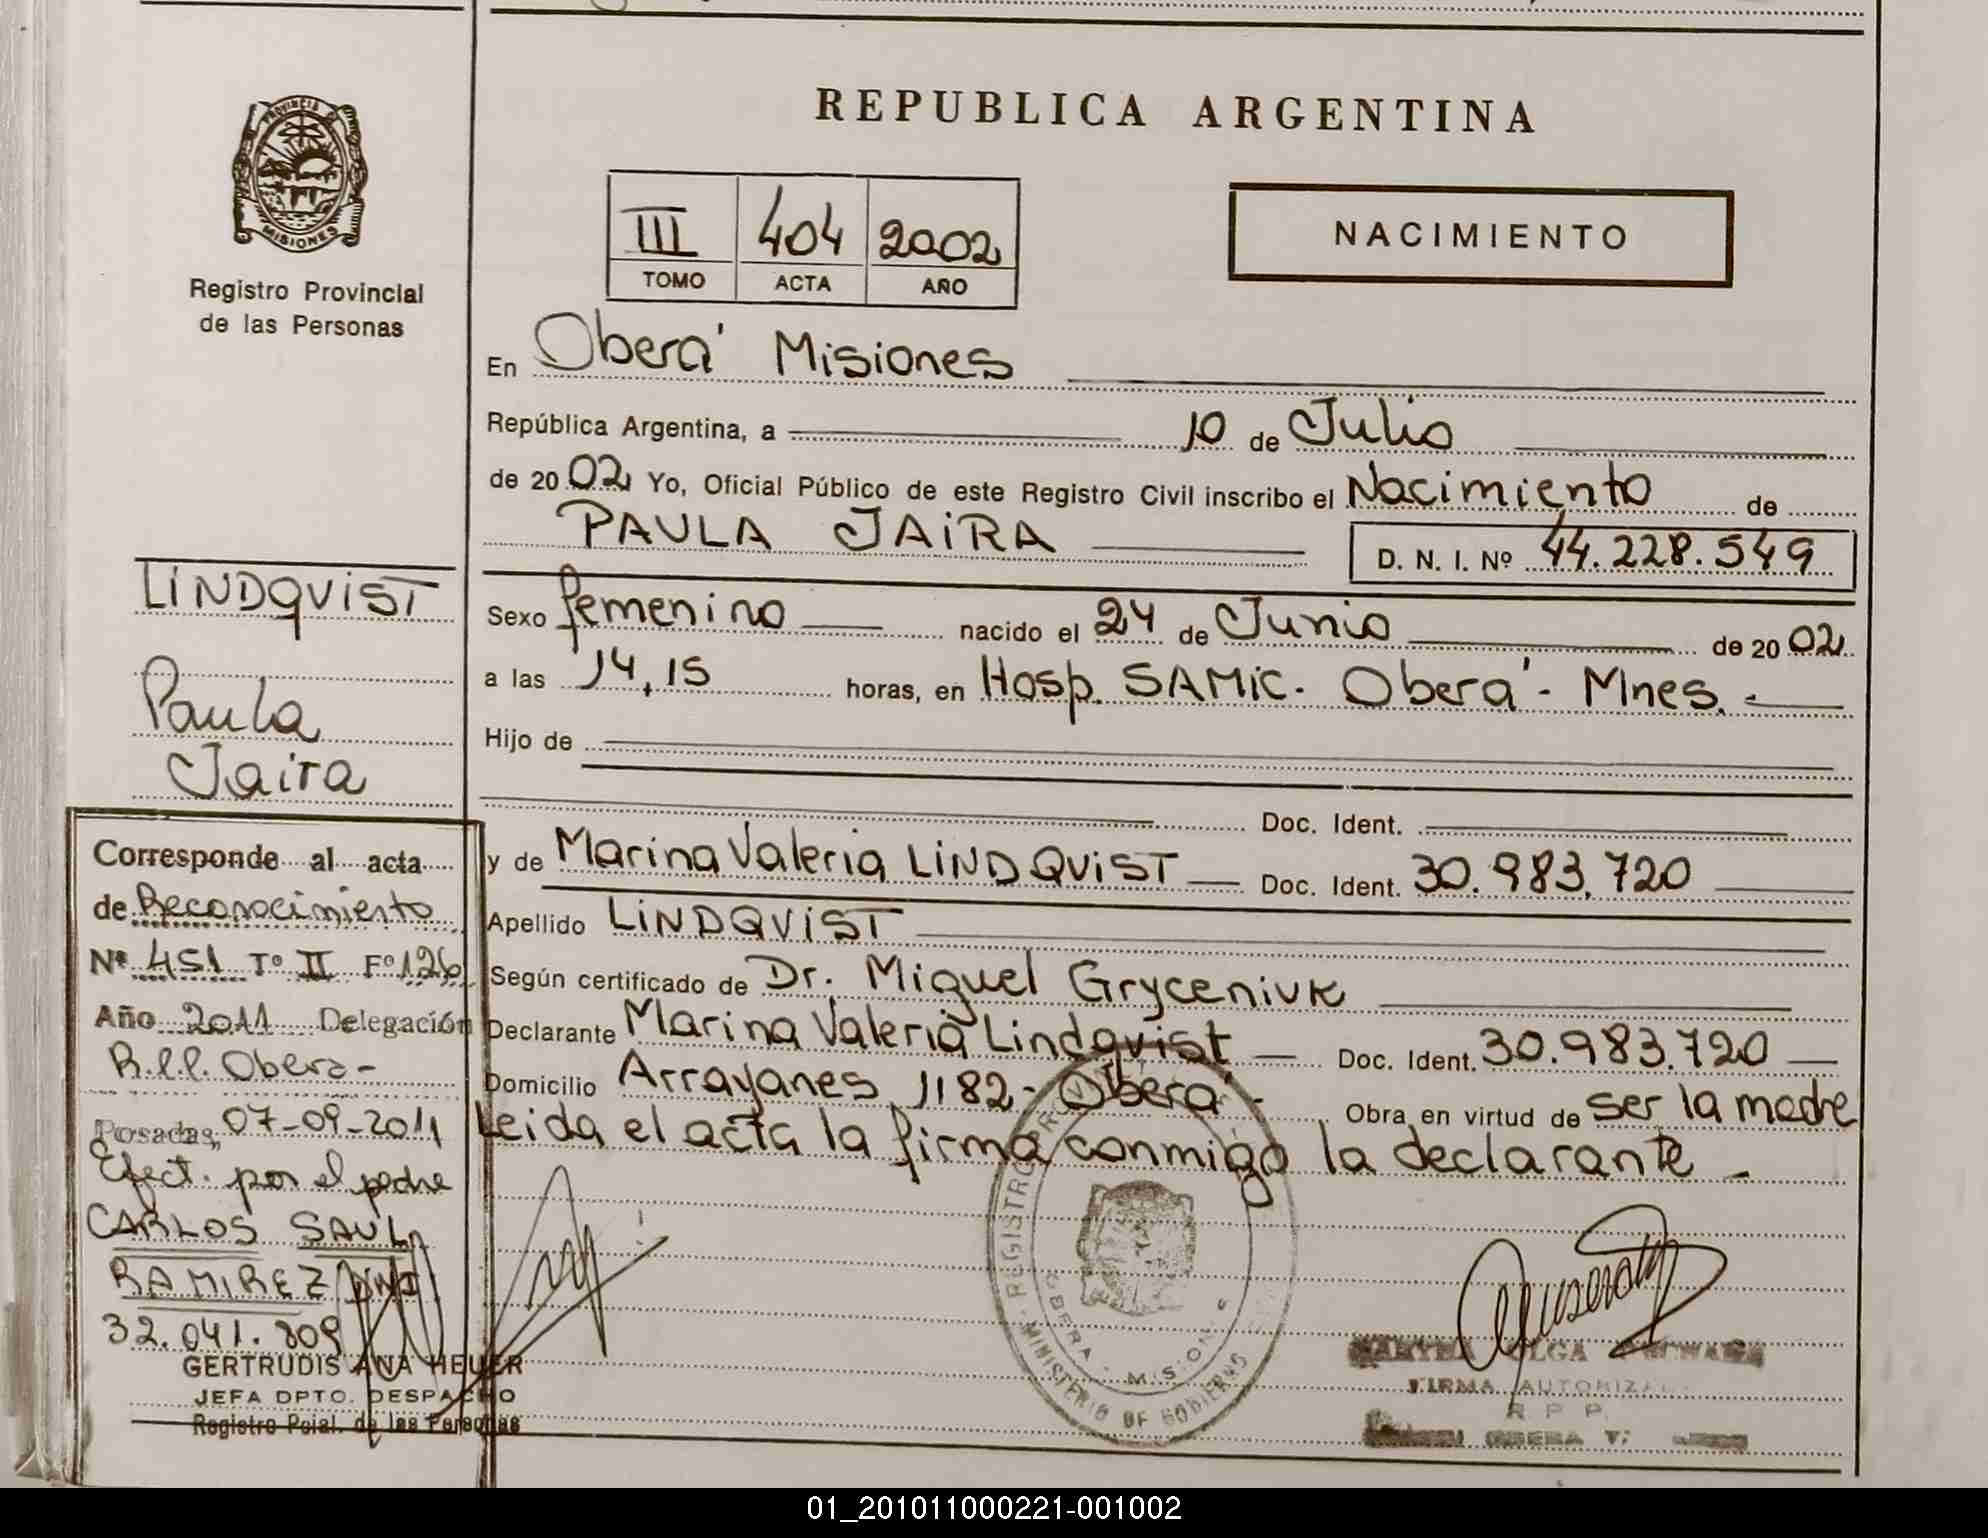 PROVINCIA DE
MISIONES
Registro Provincial
de las Personas
REPUBLICA ARGENTINA
III 404 2002
TOMO ACTA AÑO
NACIMIENTO
En Oberá Misiones
República Argentina, a 10 de Julio
de 2002 Yo, Oficial Público de este Registro Civil inscribo el Nacimiento de
PAULA JAIRA
D. N. I. Nº 44.228.549
Sexo femenino nacido el 24 de Junio de 2002
a las 14,15 horas, en Hosp. SAMIC. Oberá - Mnes. -
Hijo de
Doc. Ident.
y de Marina Valeria LINDQVIST Doc. Ident. 30.983.720
Apellido LINDQVIST
Según certificado de Dr. Miguel Gryceniuk
Declarante Marina Valeria Lindqvist Doc. Ident. 30.983.720
Domicilio Arrayanes 1182 - Oberá - Obra en virtud de ser la madre
Leida el acta la firma conmigo la declarante -
LINDQVIST
Paula
Jaira
Corresponde al acta
de Reconocimiento
Nº 451 Tº II Fº 126
Año 2011 Delegación
R.P.P. Obera -
Posadas, 07-09-2011
Efect. por el padre
CARLOS SAUL
RAMIREZ DNI
32.041.809
GERTRUDIS ANA HEUER
JEFA DPTO. DESPACHO
Registro Pcial. de las Personas
REGISTRO
MINISTERIO DE GOBIERNO
OBERA - MISIONES
OLGA
FIRMA AUTORIZADA
R P P
OBERA
01_201011000221-001002